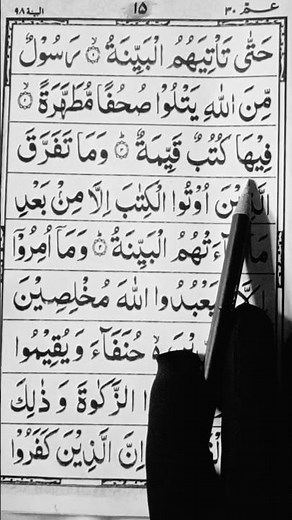 عـمّ ٣٠ ١٥ البينة ٩٨
حَتّٰى تَاْتِيَهُمُ الْبَيِّنَةُ ۙ ١ رَسُوْلٌ
مِّنَ اللّٰهِ يَتْلُوْا صُحُفًا مُّطَهَّرَةً ۙ ٢
فِيْهَا كُتُبٌ قَيِّمَةٌ ؕ ٣ وَمَا تَفَرَّقَ
اُوْتُوا الْكِتٰبَ اِلَّا مِنْۢ بَعْدِ
الْبَيِّنَةُ ؕ وَمَاۤ اُمِرُوْۤا
اللّٰهَ مُخْلِصِيْنَ
حُنَفَآءَ وَيُقِيْمُوا
الزَّكٰوةَ وَ ذٰلِكَ
اِنَّ الَّذِيْنَ كَفَرُوْا